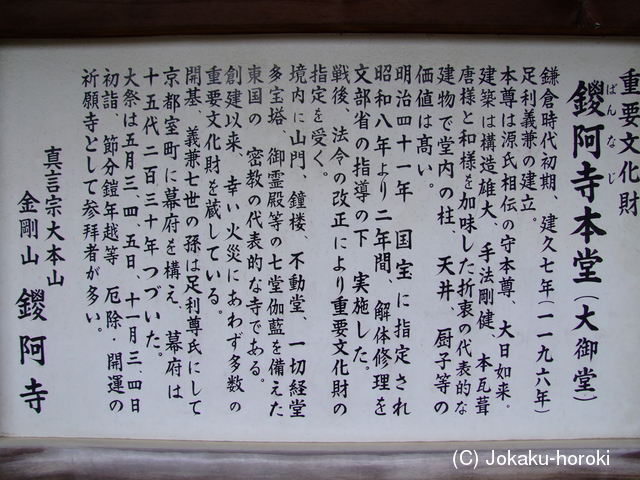 重要文化財
鑁阿寺本堂（大御堂）
ばんなじ
鎌倉時代初期、建久七年（一一九六年）
足利義兼の建立。
本尊は源氏相伝の守本尊、大日如来。
建築は構造雄大、手法剛健、本瓦葺
唐様と和様を加味した折衷の代表的な
建物で堂内の柱 天井、厨子等の
価値は高い。
明治四十一年 国宝に指定され
昭和八年より二年間、解体修理を
文部省の指導の下 実施した。
戦後、法令の改正により重要文化財の
指定を受く。
境内に山門、鐘楼、不動堂、一切経堂
多宝塔、御霊殿等の七堂伽藍を備えた
東国の 密教の代表的な寺である。
創建以来、幸い火災にあわず多数の
重要文化財を蔵している。
開基、義兼七世の孫は足利尊氏にして
京都室町に幕府を構え、幕府は
十五代二百三十年つづいた。
大祭は五月三、四、五日、十一月三、四日
初詣、節分鎧年越等 厄除・開運の
祈願寺として参拝者が多い。
真言宗大本山
金剛山 鑁阿寺
(C) Jokaku-horoki